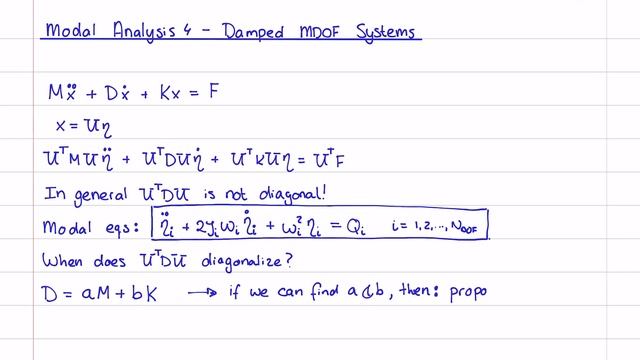 Modal Analysis 4 - Damped MDOF Systems
Mẍ + Dẋ + Kx = F
x = Uη
UᵀMUη̈ + UᵀDUη̇ + UᵀKUη = UᵀF
In general UᵀDU is not diagonal!
Modal eqs: η̈ᵢ + 2ζᵢωᵢη̇ᵢ + ωᵢ²ηᵢ = Qᵢ i = 1, 2, ..., N_DOF
When does UᵀDU diagonalize?
D = aM + bK → if we can find a & b, then: propo